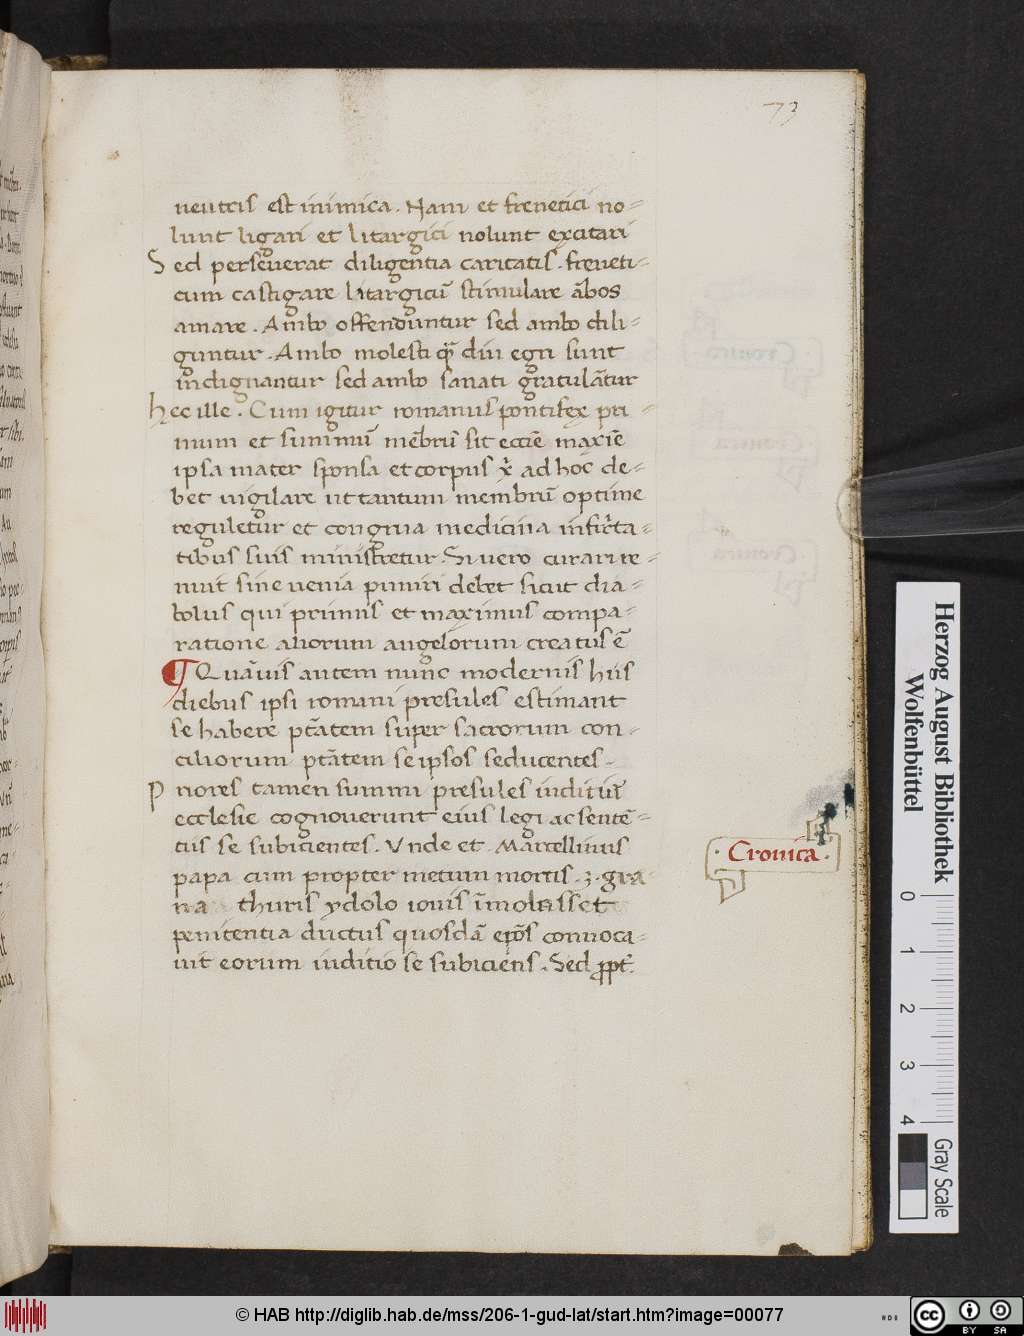 73
neutris est inimica. Nam et frenetici no=
lunt ligari et litargici nolunt excitari
Sed perseuerat diligentia caritatis. freneti=
cum castigare litargicū stimulare ābos
amare. Ambo offenduntur sed ambo dili=
guntur. Ambo molesti qƷ̄ diu egri sunt
indignantur sed ambo sanati gratulātur
hec ille. Cum igitur romanus pontifex pri=
mum et summū mēbrū sit eccīe maxīe
ipsa mater sponsa et corpus x̄ ad hoc de=
bet uigilare ut tantum membrū optime
reguletur et congrua medicina infirta=
tibus suis ministretur. Si uero curari re=
nuit sine uenia puniri debet sicut dia=
bolus qui primus et maximus compa=
ratione aliorum angelorum creatus ē
¶ Quāuis autem nunc modernis hiis
diebus ipsi romani presules estimant
se habere ptātem super sacrorum con=
ciliorum ptātem se ipsos seducentes.
Priores tamen summi presules
ecclesie cognouerunt eius legi ac sentē=
tiis se subicientes. Vnde et Marcellinus
papa cum propter metum mortis .3. gra=
na thuris ydolo iouis īmolasset
penitentia ductus quosdā ep̄os conuoca=
uit eorum iuditio se subiciens. Sed ppt̄.
. Cronica .
Herzog August Bibliothek
Wolfenbüttel
0 1 2 3 4
Gray Scale
© HAB http://diglib.hab.de/mss/206-1-gud-lat/start.htm?image=00077
cc BY SA